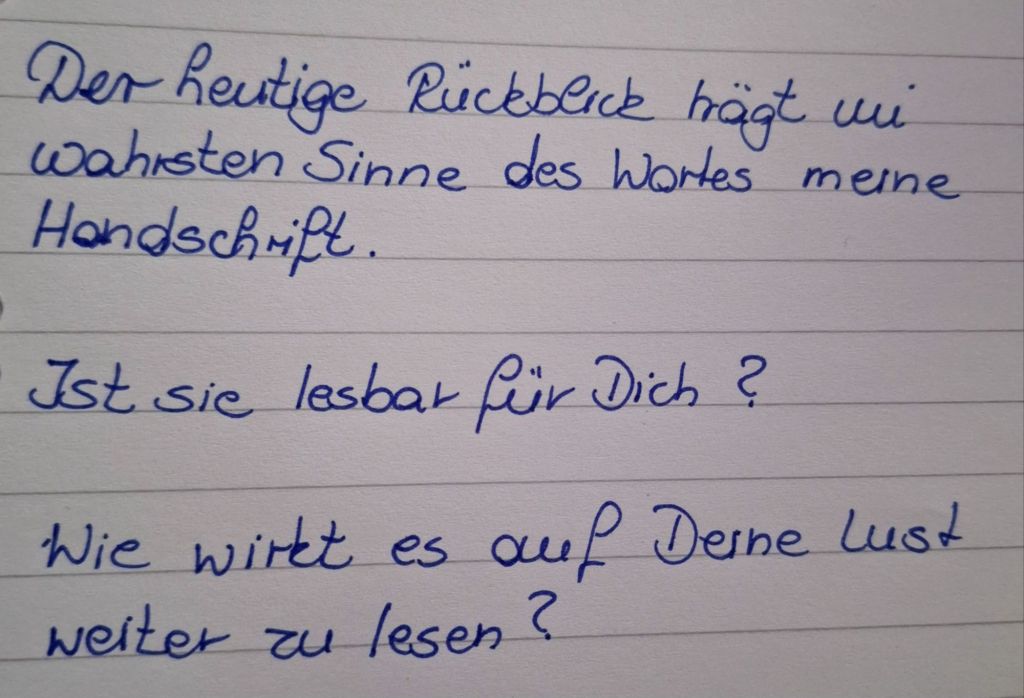 Der heutige Rückblick trägt im
wahrsten Sinne des Wortes meine
Handschrift.
Ist sie lesbar für Dich?
Wie wirkt es auf Deine Lust
weiter zu lesen?